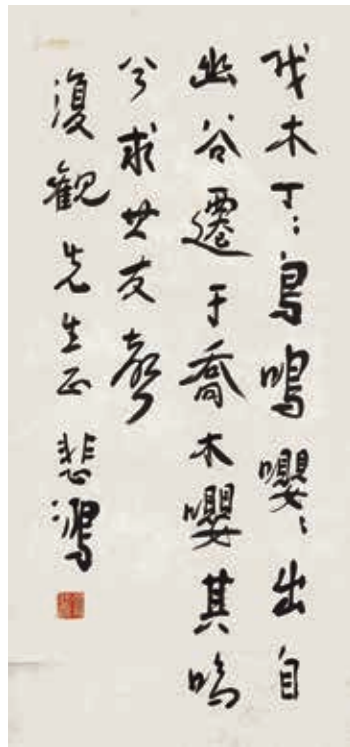 伐木丁〻鳥鳴嚶〻出自
幽谷遷于喬木嚶其鳴
兮求其友聲
復觀先生正 悲鴻